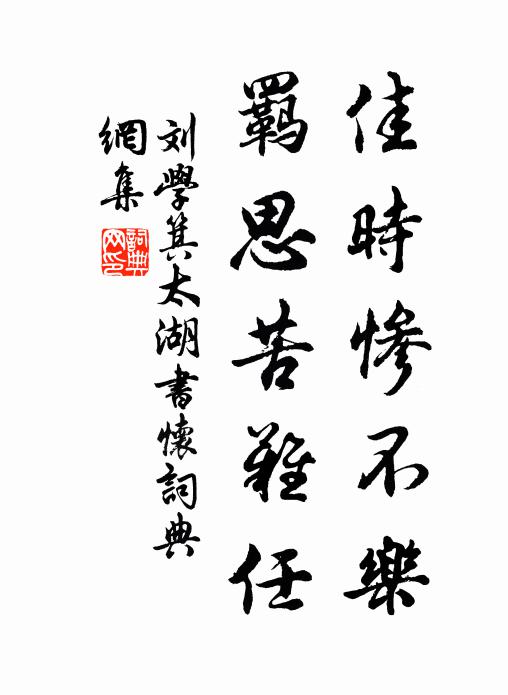 佳時慘不樂
羈思苦難任
刘學箕太湖書懷詞典
網集
詞典
网印